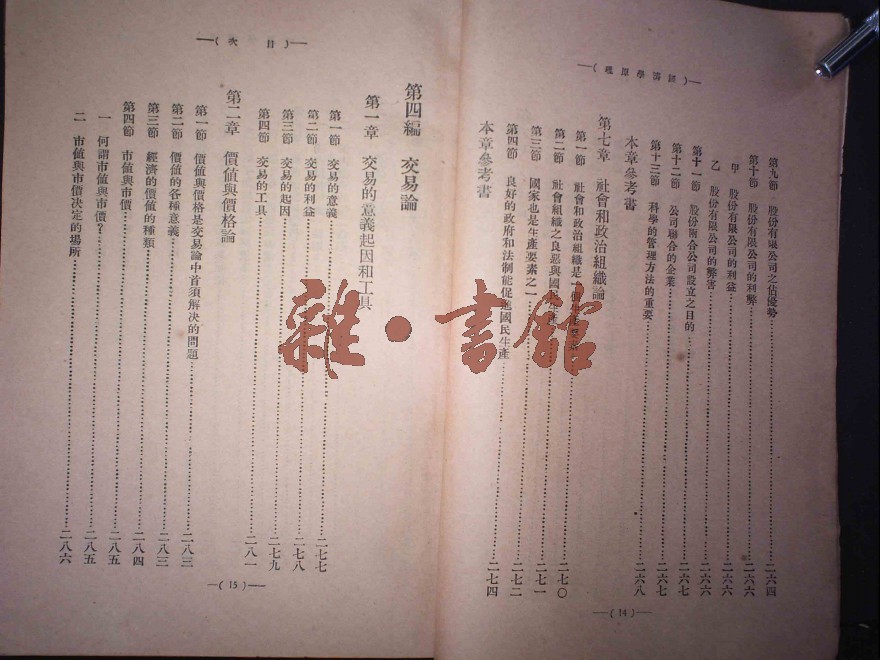 —(經濟學原理)—
第九節　股份有限公司之佔優勢……二六四
第十節　股份有限公司的利弊……二六六
甲　股份有限公司的利益……二六六
乙　股份有限公司的弊害……二六六
第十一節　股份兩合公司設立之目的……二六七
第十二節　公司聯合的企業……二六七
第十三節　科學的管理方法的重要……二六八
本章參考書
第七章　社會和政治組織論
第一節　社會和政治組織是一個……二七〇
第二節　社會組織之良惡與國民……
第三節　國家也是生產要素之一……二七一
第四節　良好的政府和法制能促進國民生產……二七二
本章參考書……二七四
—(14)—
—(目次)—
第四編　交易論
第一章　交易的意義起因和工具
第一節　交易的意義……二七七
第二節　交易的利益……二七八
第三節　交易的起因……二七九
第四節　交易的工具……二八一
第二章　價值與價格論
第一節　價值與價格是交易論中首須解決的問題……二八三
第二節　價值的各種意義……二八三
第三節　經濟的價值的種類……二八四
第四節　市值與市價……二八五
一　何謂市值與市價？……二八五
二　市值與市價決定的場所……二八六
—(15)—
雜·書館